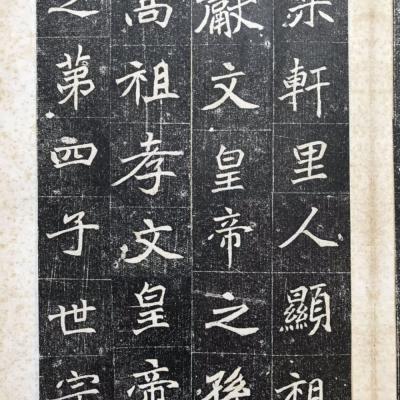 乘軒里人顯祖
獻文皇帝之孫
高祖孝文皇帝
之第四子世宗